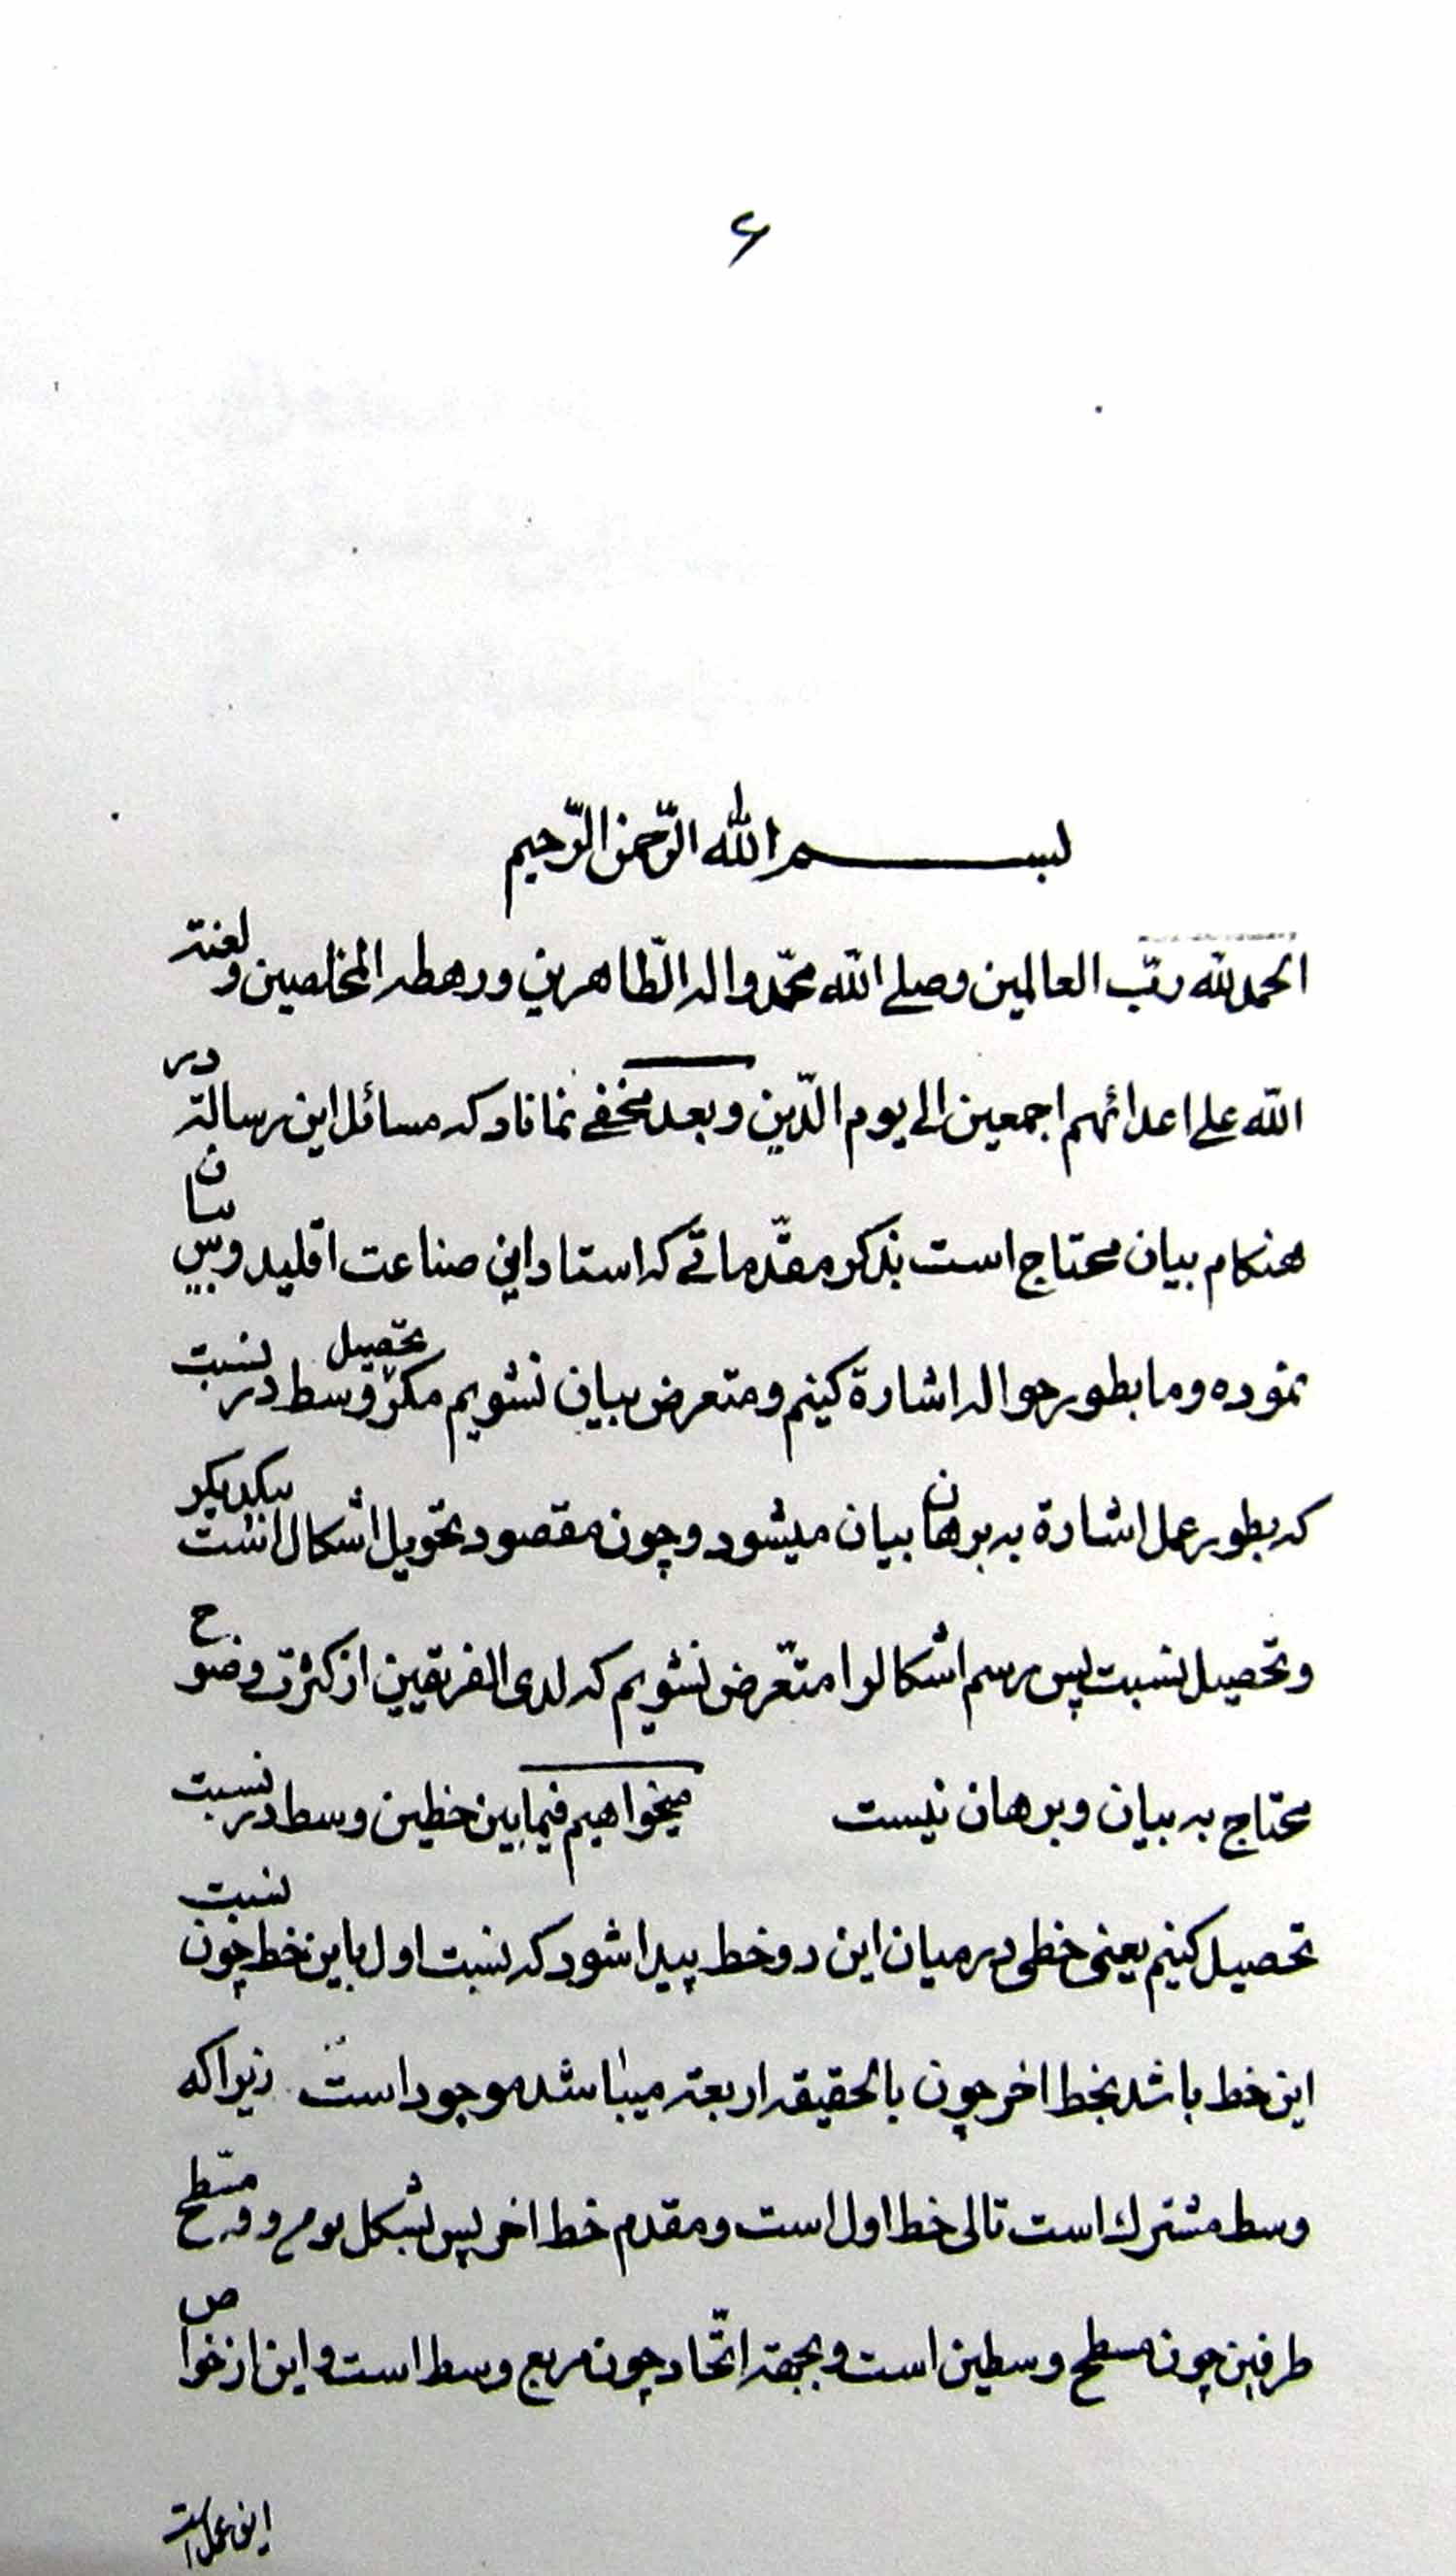 ۶
بســـم الله الرّحمن الرّحیم
الحمد لله ربّ العالمین وصلی الله محمّد واله الطّاهرین ورهطه المخلصین ولعنة
الله علی اعدائهم اجمعین الی یوم الدّین وبعد مخفی نماناد که مسائل این رسالة در
هنکام بیان محتاج است بذکر مقدّماتی که استاد این صناعت اقلیدوس بیان
نموده وما بطور حواله اشارة کینم ومتعرض ببیان نشویم مکر تحصیل وسط در نسبت
که بطور عمل اشارة به برهان بیان میشود وچون مقصود تحویل اشکال است بیکدیکر
وتحصیل نسبت پس رسم اشکالرا متعّرض نشویم که لدی الفریقین از کثرت وضوح
محتاج به بیان وبرهان نیست میخواهیم فیما بین خطین وسط در نسبت
تحصیل کینم یعنی خطی در میان این دو خط پیدا شود که نسبت اول باین خط چون نسبت
این خط باشد بخط اخر چون بالحقیقه اربعة میباشد موجود است زیرا که
وسط مشترک است تالی خط اول است ومقدم خط اخر پس بشکل یو م و وه مسّطح
طرفین چون مسطح وسطین است وبجهة اتّحاد چون مربع وسط است واین از خواص
این عمل است